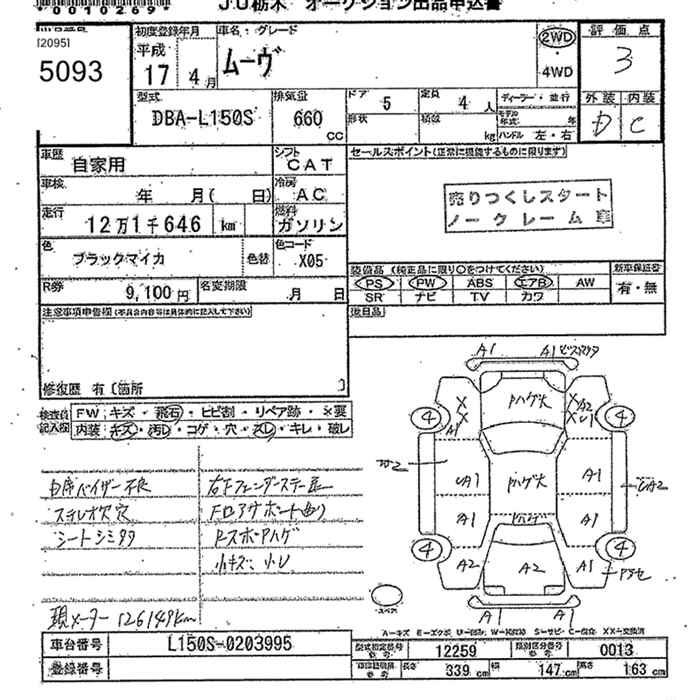 00102091
JU栃木 オークション出品申込書
[2095]
5093
初度登録年月 車名・グレード
平成 17年 4月
ムーヴ
2WD
4WD
評価点
3
外装 内装
D C
型式 排気量 ドア 定員 ディーラー・並行
DBA-L150S 660 CC 5 4人
形状 積数 kg モデル年式 年
ハンドル 左・右
車歴 自家用
シフト CAT
セールスポイント(正常に機能するものに限ります)
車検 年 月( 日)
冷房 AC
売りつくしスタート
ノークレーム車
走行 12万1千646 km
燃料 ガソリン
色 ブラックマイカ 色替
色コード X05
装備品(純正品に限り○をつけてください) 新車保証書
PS PW ABS エアB AW
SR ナビ TV カワ
有・無
R券 9,100円 名変期限 月 日
注意事項申告欄(不具合内容等は具体的に記入して下さい) 後日品
修復歴 有〔箇所 〕
検査員記入欄
FW キズ・飛石・ヒビ割・リペア跡・×要
内装 キズ・汚レ・コゲ・穴・スレ・キレ・破レ
A1 A1
ハゲ大
X X
A1
A2
4 4
ハゲ大
UA1 A1
UA2
ハゲ
A1 A1
4 4
A2 A2 A1
A1 A1
スペア
バイザー不良
ステレオ欠 穴
シートシミ
FロアサポートUり
RスポAハゲ
小キズ 小U
現メーター 126149km
A-キズ E-エクボ U-凹み W-補修跡 S-サビ C-腐食 XX-交換済
車台番号 L150S-0203995
登録番号
型式指定番号 12259 類別区分番号 0013
長さ 339 cm 幅 147 cm 高さ 163 cm